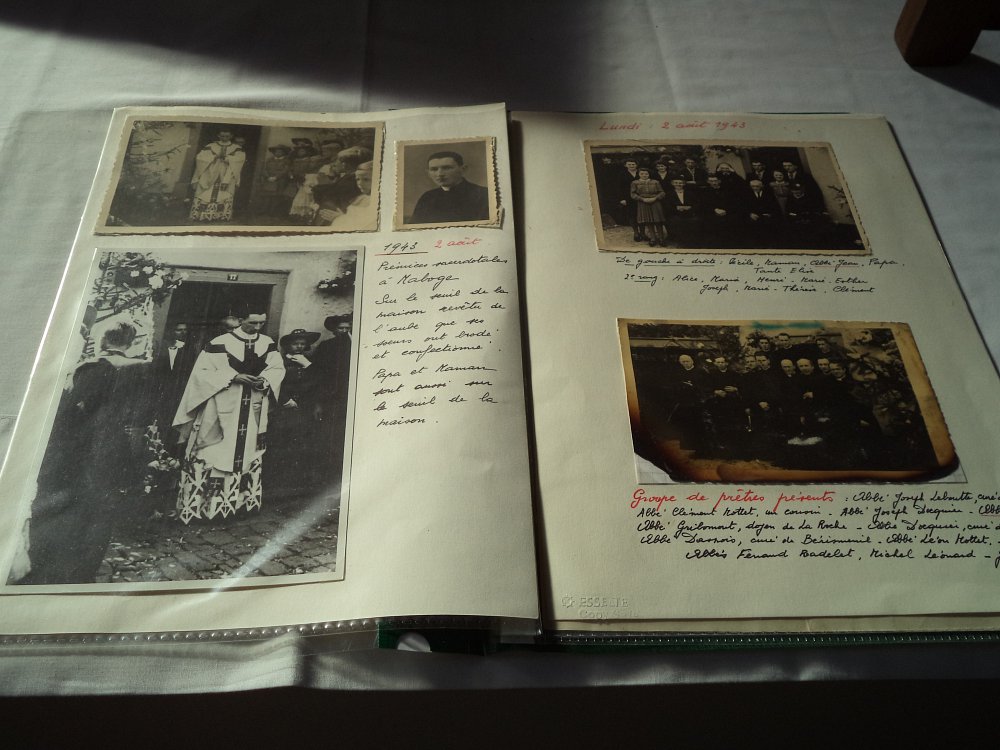 17
1943 2 août
Prémices sacerdotales
à Maboge
Sur le seuil de la
maison revêtu de
l'aube que ses
soeurs ont brodé
et confectionné.
Papa et Maman
sont aussi sur
le seuil de la
maison.
Lundi : 2 août 1943
De gauche à droite : Cécile, Maman, Abbé Jean, Papa,
Tante Elise
2e rang : Alice, Maria, Henri, Marie-Esther
Joseph, Marie-Thérèse, Clément
Groupe de prêtres présents : Abbé Joseph Leboutte, curé
Abbé Clément Mottet, un cousin - Abbé Joseph Docquier - Abb
Abbé Grilomont, doyen de La Roche - Abbé Docquier, curé d
Abbé Darnois, curé de Bérismenil - Abbé Léon Mottet, -
Abbés Fernand Badelet, Michel Léonard -
ESSELTE
Copy Safe